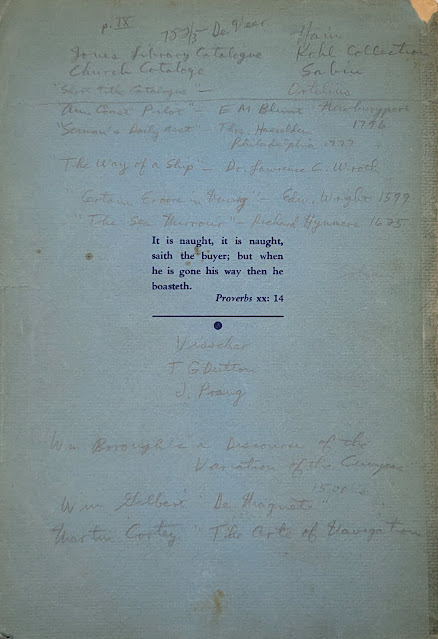 p. IX
Jones Library Catalogue Kohl Collection
Church Cataloge Sabin
"Short Title Catalogue" –
Am Coast Pilot" – E M Blunt Newburyport
1796
"Seaman's Daily Asst" – Thos. Haselden
Philadelphia 1777
"The Way of a Ship" – Dr. Lawrence C. Wroth
"Certain Errors in Navig" – Edw. Wright 1599
"The Sea Mirrour" – Richard 1625
It is naught, it is naught,
saith the buyer; but when
he is gone his way then he
boasteth.
Proverbs xx: 14
Visscher
T G Dutton
J. Prang
Wm Borough's a Discourse of the
Variation of the
Wm Gilbert "De Magnete"
Martin Cortez "The Arte of Navigation